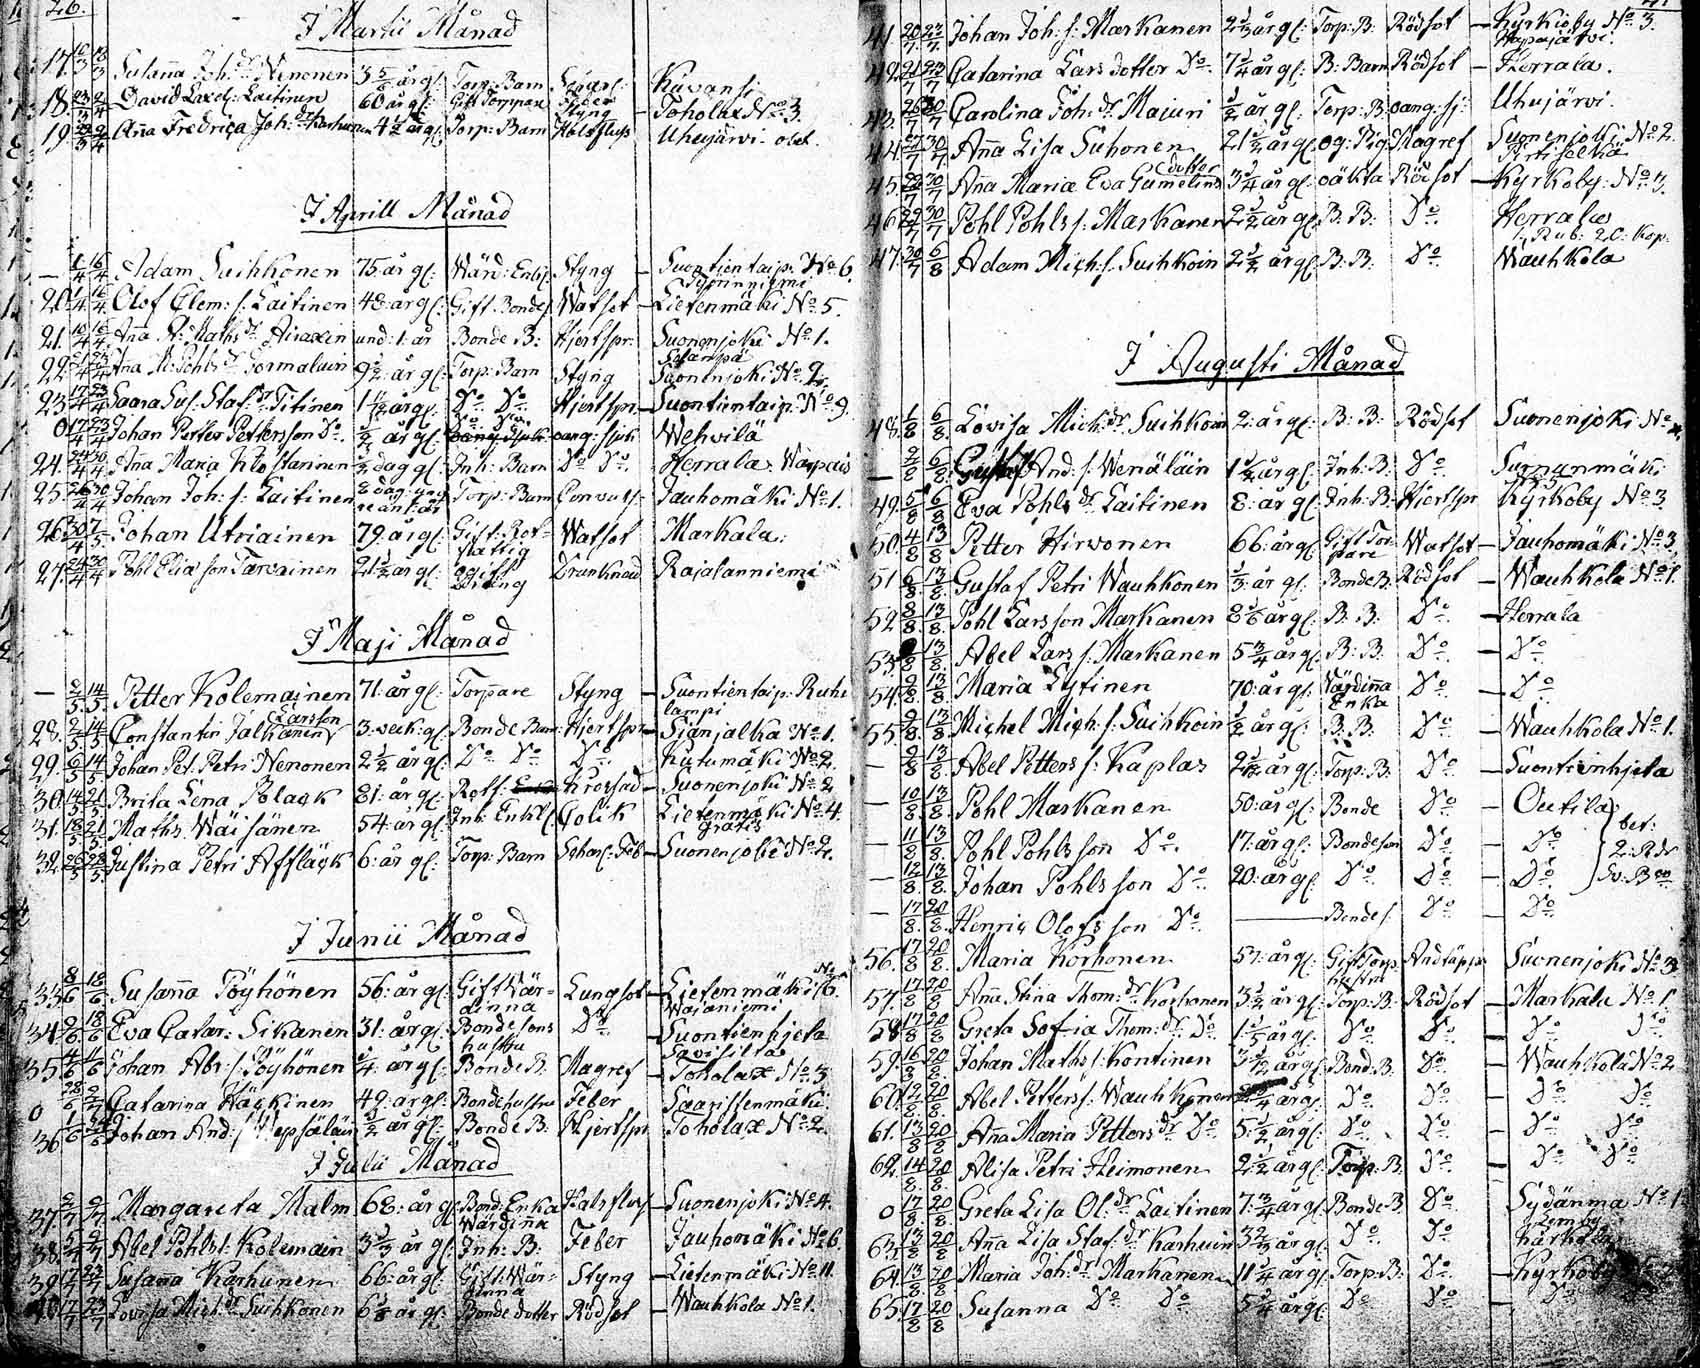 26.
I Martii Månad
17. 16/3 18/3 Susanna Joh: dr Nenonen 3 5/6 år gl: Torp: Barn Scharl: Kuvansi
18. 23/3 2/4 David Laxel: Laitinen 60 år gl: Gift Torppare Feber Styng Toholax No 3.
19. 23/3 2/4 Anna Fredrica Joh: dr Karhunen 4 1/2 år gl: Torp: Barn Halsfluss Uhujärvi
I Aprill Månad
— 6/4 16/4 Adam Suihkonen 75 år gl: Wärd: Enkl: Styng – Suontientaip: No 6. Tyyrinniemi
20. 1/4 16/4 Olof Clem: s: Laitinen 48: år gl: Gift Bonde Watsot – Lietenmäki No 5.
21. 10/4 16/4 Anna St: Maths dr Airaxin und: 1: år Bonde B: Hjertspr: Suonenjoki No 1.
22. 21/4 23/4 Anna M: Pohls dr Gormaluin 9 1/2: år gl: Torp: Barn Styng Suonenjoki No 2.
23. 17/4 23/4 Saara Sus: Staf: dr Titinen 1 1/2 år gl. Do Do Hjertspr: – Suontientaip: No 9.
0 17/4 23/4 Johan Petter Pettersson Do. 1/2 år gl: oang: sjuk Wehvilä
24. 24/4 30/4 Anna Maria Klostarinen 1/2 dag gl: Inh: Barn Do Do. Herrala Warpais
25. 26/4 30/4 Johan Joh: s: Laitinen 8 dag: Torp: Barn Convuls: Jauhomäki No 1.
26. 30/4 7/5 Johan Utriainen 79: år gl: Gift: Rotfattig Watsot Markala.
27. 24/4 30/4 Pohl Eliæson Tarvainen 21 1/2 år gl: ogift dräng Drunknad Rajalanniemi
I Maji Månad
— 2/5 14/5 Petter Kolemainen 71: år gl: Torppare Styng – Suontientaip: Ruhilampi
28. 2/5 14/5 Constantin Larsson Jalkanen 3: veck: gl: Bonde Barn: Hjertspr – Sianjalka No 1.
29. 6/5 14/5 Johan Pet: Petri Nenonen 2 1/2 år gl: Do Do Do Kutumäki No 2.
30. 14/5 21/5 Brita Lena Polack 81: år gl: Rotf: Krossad – Suonenjoki No 2
31. 18/5 21/5 Maths Wäisänen 54: år gl: Inh: Enkl: Colik Lietenmäki No 4. gratis
32. 26/5 28/5 Justina Petri Affläck 6: år gl: Torp: Barn Scharl: Feb – Suonenjoki No 2.
I Junii Månad
33. 8/6 18/6 Susanna Pöyhönen 56: år gl: Gift Wärdinna Lungsot – Lietenmäki No 6. Wajaniemi
34. 9/6 18/6 Eva Catar: Sikanen 31: år gl: Bondesons hustru Do – Suontienhjeta Savisilta
35. 4/6 11/6 Johan Abr: s: Pöyhönen 1/4: år gl: Bonde B: Magref – Toholax No 3
0 28/6 2/7 Catarina Häckinen 49: år gl: Bondehustru Feber Saaristenmäki
36 1/6 24/6 Johan And: s: Wepsäläin 1/2 år gl: Bonde B: Hjertspr Toholax No 2.
I Julii Månad
37. 2/7 9/7 Margareta Malm 68: år gl Bond: Enka Wärdinna Halsfluss – Suonenjoki No 4.
38. 5/7 9/7 Abel Pohls s: Kolemain 3 1/3 år gl: Inh: B: Feber Jauhomäki No 6.
39. 17/7 23/7 Susanna Karhunen 66: år gl: Gift: Wärdinna Styng – Lietenmäki No 11.
40. 17/7 23/7 Lovisa Mich: dr Suihkonen 6 1/8 år gl: Bonde dotter Rödsot – Wauhkola No 1.
41. 20/7 27/7 Johan Joh: s: Markanen 2 1/3 år gl: Torp: B: Rödsot – Kyrkioby No 3. Hapajärvi.
42. 21/7 23/7 Catarina Lars dotter Do. 7 1/4 år gl: B: Barn Rödsot – Herrala.
43. 26/7 30/7 Carolina Joh: dr Maiuri 1/2 år gl: Torp: B: oang: sj: Uhujärvi.
44. 27/7 30/7 Anna Lisa Suhonen 21 1/2 år gl: og: Pig Magref Suonenjoki No 2. Pirtiselkä
45. 29/7 30/7 Anna Maria Eva Gumelius dotter 3 1/4 år gl: oäkta Rödsot – Kyrkoby: No 3.
46 29/7 30/7 Pohl Pohls s: Markanen 2 1/2 år gl: B: B: Do. Herrala 1 Rub: 20: kop:
47: 30/7 6/8 Adam Mich: s: Suihkoin 2 1/2 år gl: B: B: Do. Wauhkola
I Augusti Månad
48. 1/8 6/8 Lovisa Mich: dr Suihkoin 2: år gl: B: B: Rödsot Suonenjoki No 4.
— 2/8 6/8 Gustaf And: s: Wenäläin 1 1/2 år gl: Inh: B: Do. Surnunmäki
49. 5/8 6/8 Eva Pohls dr Laitinen 8: år gl: Inh: B: Hjertspr Kyrkoby No 3
50. 4/8 13/8 Petter Hirwonen 66: år gl: Gift Torpare Watsot – Jauhomäki No 3
51 6/8 13/8 Gustaf Petri Wauhkonen 1/3: år gl: Bonde B. Rödsot – Wauhkola No 1.
52. 8/8 13/8 Pohl Larsson Markanen 8 1/6 år gl: B: B: Do. – Herrala
53. 13/8 Abel Lars s: Markanen 5 3/4 år gl: B: B: Do – Do.
54. 9/8 13/8 Maria Lytinen 70: år gl: Värdinna Enka Do – Do.
55. 9/8 13/8 Michel Mich: s: Suihkoin 1/2 år gl: B: B: Do – Wauhkola No 1.
— 9/8 13/8 Abel Petters s: Kaplas 2 1/2 år gl: Torp: B: Do – Suontienhjeta
— 10/8 13/8 Pohl Markanen 50: år gl: Bonde Do – Outila
— 11/8 13/8 Pohl Pohlsson Do. 17: år gl: Bondeson Do – Do. bet: 2: Rdr
— 12/8 13/8 Johan Pohlsson Do. 20: år gl: Do. Do – Do. Sv: Bco
— 17/8 20/8 Henric Olofsson Do. —— Bondes: Do – Do.
56. 17/8 20/8 Maria Korhonen 57: år gl: Gift Torp: hustru Andtäppa Suonenjoki No 3
57. 17/8 20/8 Anna Stina Thom: dr Korhonen 3 1/2 år gl: Torp: B: Rödsot – Markala No 1
58 17/8 20/8 Greta Sofia Thom: dr Do. 1 1/5 år gl: Do. Do. – Do. Do.
59. 16/8 20/8 Johan Maths s: Kontinen 3 1/2 år gl: Bond: B: Do. – Wauhkola No 2
60. 12/8 20/8 Abel Petters s: Wauhkonen 1/4 år gl: Do. Do. – Do. Do.
61. 13/8 20/8 Anna Maria Petters dr Do 5 1/2 år gl: Do. Do. – Do. Do.
62. 14/8 20/8 Alisa Petri Heimonen 2 1/2 år gl: Torp: B. Do. – Do. Do.
0 17/8 20/8 Greta Lisa Ol: dr Laitinen 7 3/4 år gl: Bonde B. Do. – Sydänma No 1
63. 13/8 20/8 Anna Lisa Staf: dr Karhuin 3 2/3 år gl: Do. Do. – Harkola
64. 13/8 20/8 Maria Joh: dr Markanen 11 1/4 år gl: Torp: B: Do. – Kyrkoby
65. 17/8 20/8 Susanna Do Do. 5 1/4 år gl: Do. Do. –